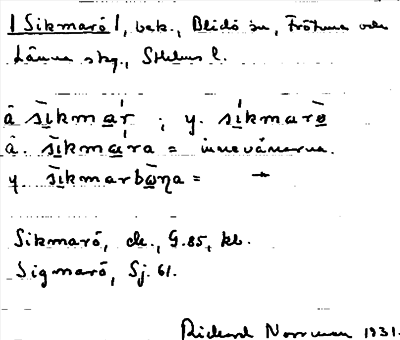 [Sikmarö], bek., Blidö sn, Frötuna och
Länna skg., Sthlms l.
å s̀ikmár ; y. síkmarö̀
å. s̀ikmára = innevånarna.
y. s̀ikmarbòna = –"–
Sikmarö, ek., G.85, kb.
Sigmarö, Sj. 61.
Rickard Norrman 1931.